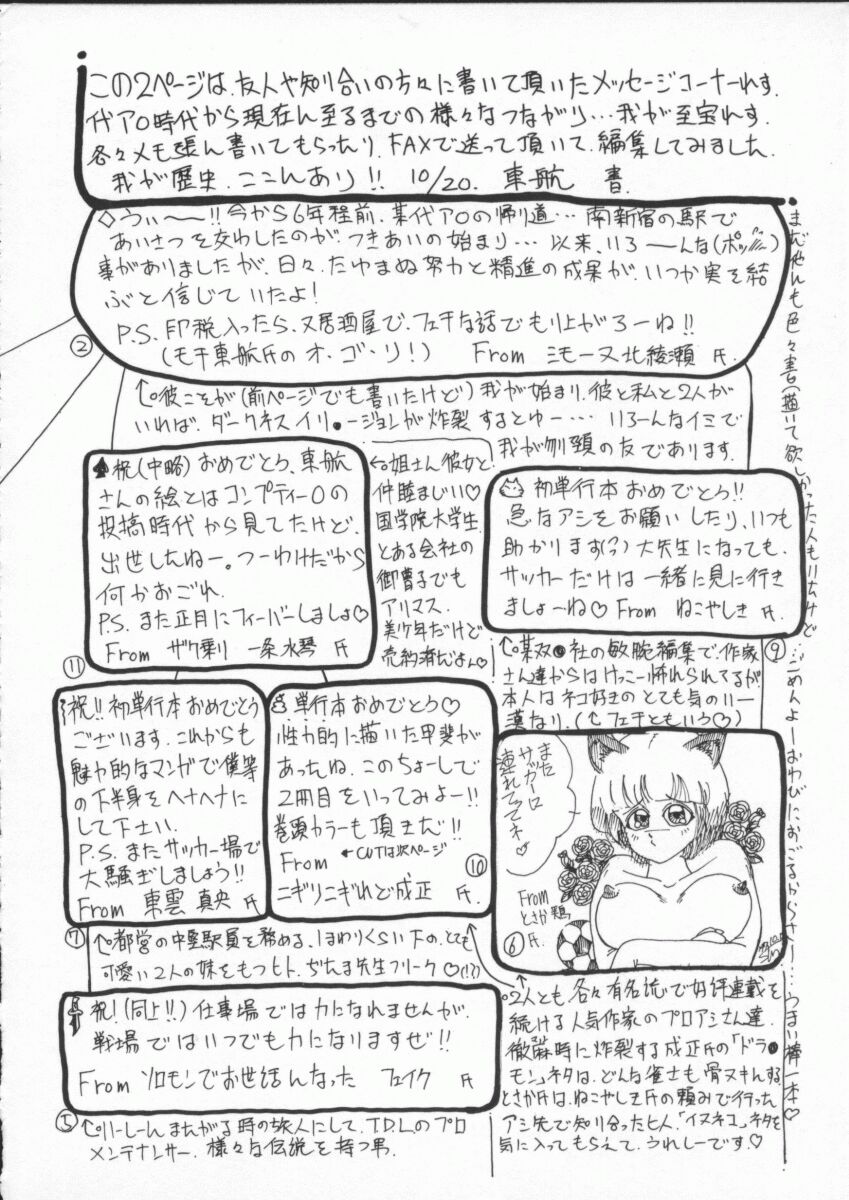 この2ページは、友人や知り合いの方々に書いて頂いたメッセージコーナーれす.
代アO時代から現在ん至るまでの様々なつながり…我が至宝れす.
各々メモ張ん書いてもらったり、FAXで送って頂いて、編集してみました.
我が歴史、ここんあり!! 10/20. 車航 書.
◇うぃ〜!!今から6年程前、某代アOの帰り道… 南新宿の駅で
あいさつを交わしたのが、つきあいの始まり… 以来、いろ〜んな(ポッ)
事がありましたが、日々、たゆまぬ努力と精進の成果が、いつか実を結
ぶと信じていたよ!
P.S. 印税入ったら、又居酒屋で、フェチな話でもり上がろーね!!
(モチ車航氏のオ・ゴ・リ!) From ミモーヌ北綾瀬 氏.
②
↑彼こそが(前ページでも書いたけど)我が始まり、彼と私と2人が
いれば、ダークネスイリ●ージョンが炸裂するとゆー… いろーんなイミで
我が刎頸の友であります.
♠祝(中略)おめでとう、車航
さんの絵とはコンプティーOの
投稿時代から見てたけど、
出世したねー。つーわけだから
何かおごれ.
P.S. また正月にフィーバーしましょ♡
From ザク乗り 一条水琴 氏
⑪
←姐さん彼女と
仲睦まじい♡
国学院大学生.
とある会社の
御曹子でも
アリマス.
美少年だけど
売約済だよん♡
初単行本おめでとう!!
急なアシをお願いしたり、いつも
助かります(?)大先生になっても、
サッカーだけは一緒に見に行き
ましょーね♡ From ねこやしき 氏.
⑨
↑某双●社の敏腕編集で、作家
さん達からはけっこー怖れられてるが
本人はネコ好きのとても気のいい
漢なり.(↑フェチともいう♡)
祝!!初単行本おめでとう
ございます.これからも
魅力的なマンガで僕等
の下半身をヘナヘナに
して下さい.
P.S. またサッカー場で
大騒ぎしましょう!!
From 東雲 真央 氏
⑦
単行本おめでとう♡
性力的に描いた甲斐が
あったね.このちょーしで
2冊目をいってみよー!!
巻頭カラーも頂きだ!!
From ←CUTは次ページ
ニギリニギれど成正 氏.
⑩
また
サガーロ
連れてってネ♡
From
とさか鶏
氏.
⑥
↑都営の中堅駅員を務める、1まわりくらい下の、とても
可愛い2人の妹をもつヒト.ぢたま先生フリーク♡(!?)
祝!(同上!!)仕事場では力になれませんが、
戦場ではいつでも力になりますぜ!!
From ソロモンでお世話んなった フェイク 氏
⑤
メンテナンサー.様々な伝説を持つ男.
↑2人とも、各々有名誌で好評連載を
続ける人気作家のプロアシさん達.
徹麻時に炸裂する成正氏の「ドラ●
モン」ネタは、どんな雀士も骨ヌキんする.
とさか氏は、ねこやしき氏の頼みで行った
アシ先で知り合ったヒト.「イヌネコ」ネタを
気に入ってもらえて、うれしーです♡
まだやんも色々書(描)いて欲しかった人もいたけど…ごめんよーおわびにおごるからさー…うまい棒一本♡